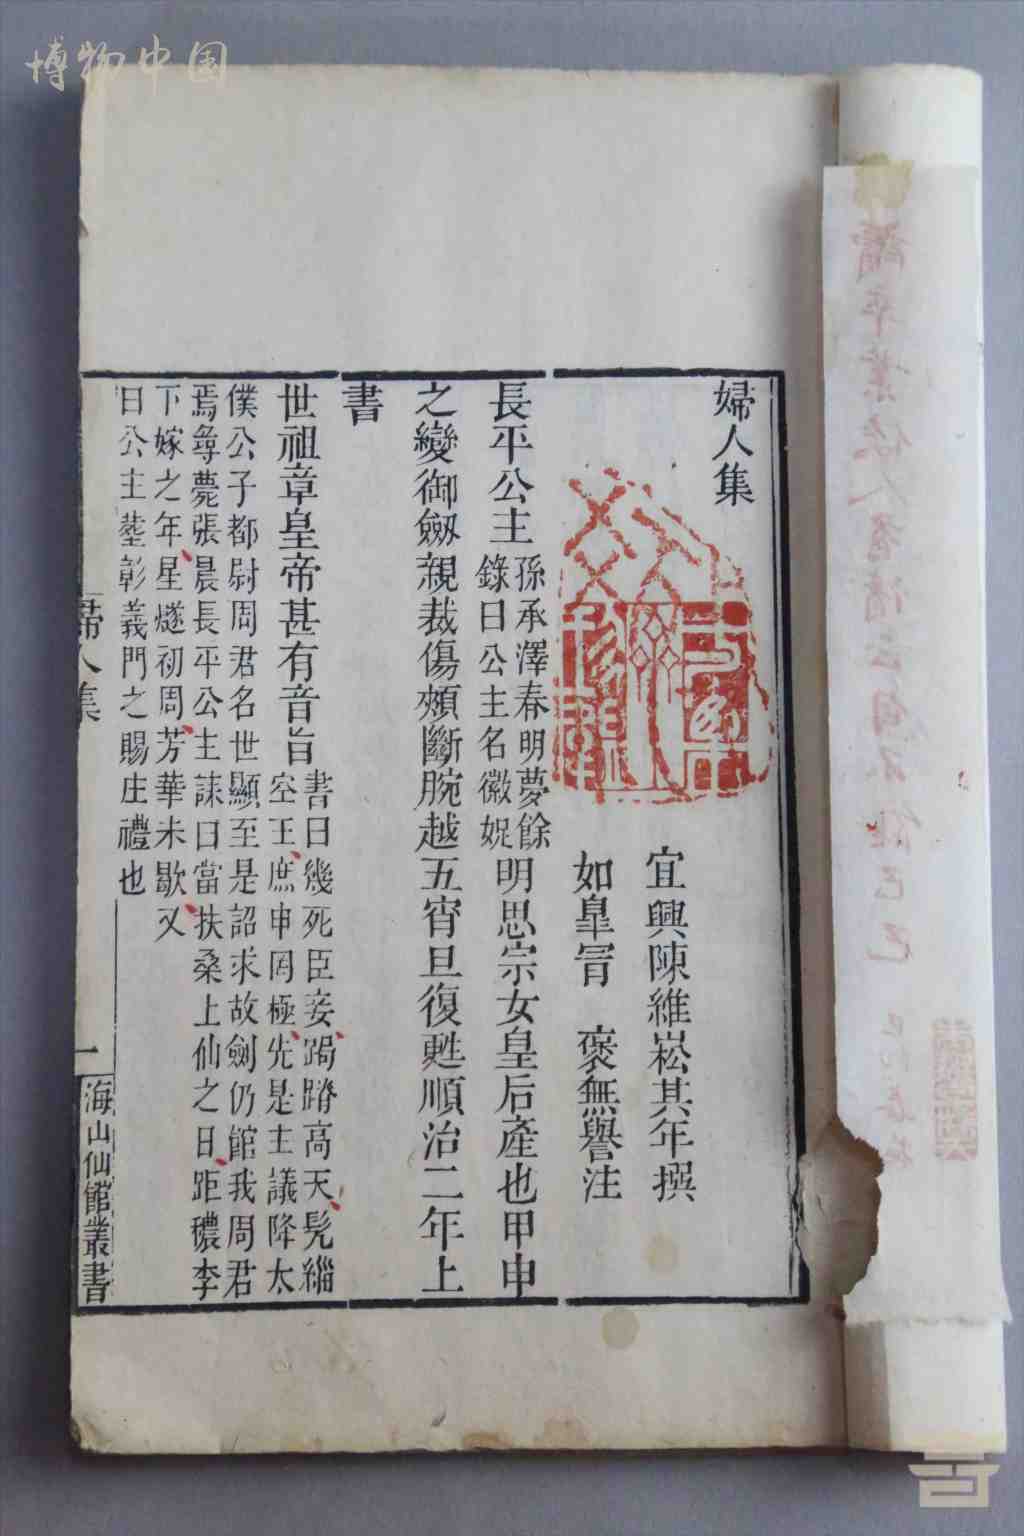 博物中国
婦人集
宜興陳維崧其年撰
如臯冒　褒無譽注
長平公主
孫承澤春明夢餘
錄曰公主名徽娖
明思宗女皇后產也甲申
之變御劒親裁傷頰斷腕越五宵旦復甦順治二年上
書
世祖章皇帝甚有音旨
書曰幾死臣妾跼蹐高天髠緇
空王庶申罔極先是主議降太
僕公子都尉周君名世顯至是詔求故劍仍館我周君
焉尋薨張晨長平公主誄曰當扶桑上仙之日距穠李
下嫁之年星燧初周芳華未歇又
曰公主塟彰義門之賜庄禮也
婦人集
一
海山仙館叢書